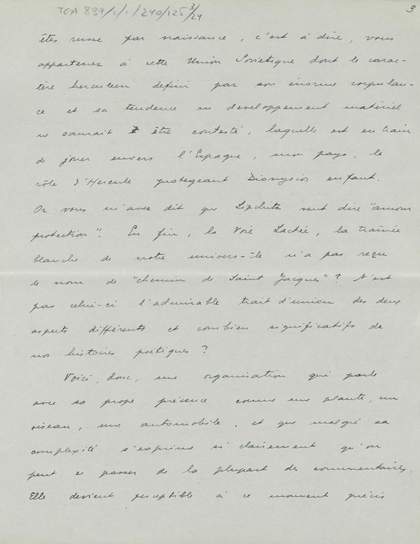 TGA 839/1/1/240/125 3/24
3
êtes russe par naissance, c'est à dire, vous
appartenez à cette Union Soviétique dont le carac-
tère herculéen defini par son énorme corpulan-
ce et sa tendence au developpement matériel
ne saurait être contesté, laquelle est en train
de jouer envers l'Espagne, mon pays, le
rôle d'Hercule protegeant Dionysios enfant.
Or vous m'avez dit que Lipchitz veut dire "amour
protection". En fin, la Voie Lactée, la trainée
blanche de notre univers n'a pas reçu
le nom de "chemin de Saint Jacques"? N'est
pas celui-ci l'admirable trait d'union des deux
aspects différents et combien significatifs de
nos histoires poétiques?
Voici, donc, une organisation qui parle
avec sa propre présence comme une plante, un
oiseau, une automobile, et qui malgré sa
complexité s'exprime si clairement qu'on
peut se passer de la plupart des commentaires.
Elle devient perceptible à ce moment précis